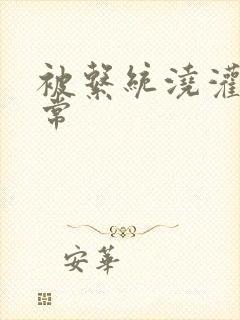 被繫統澆灌
常
安華